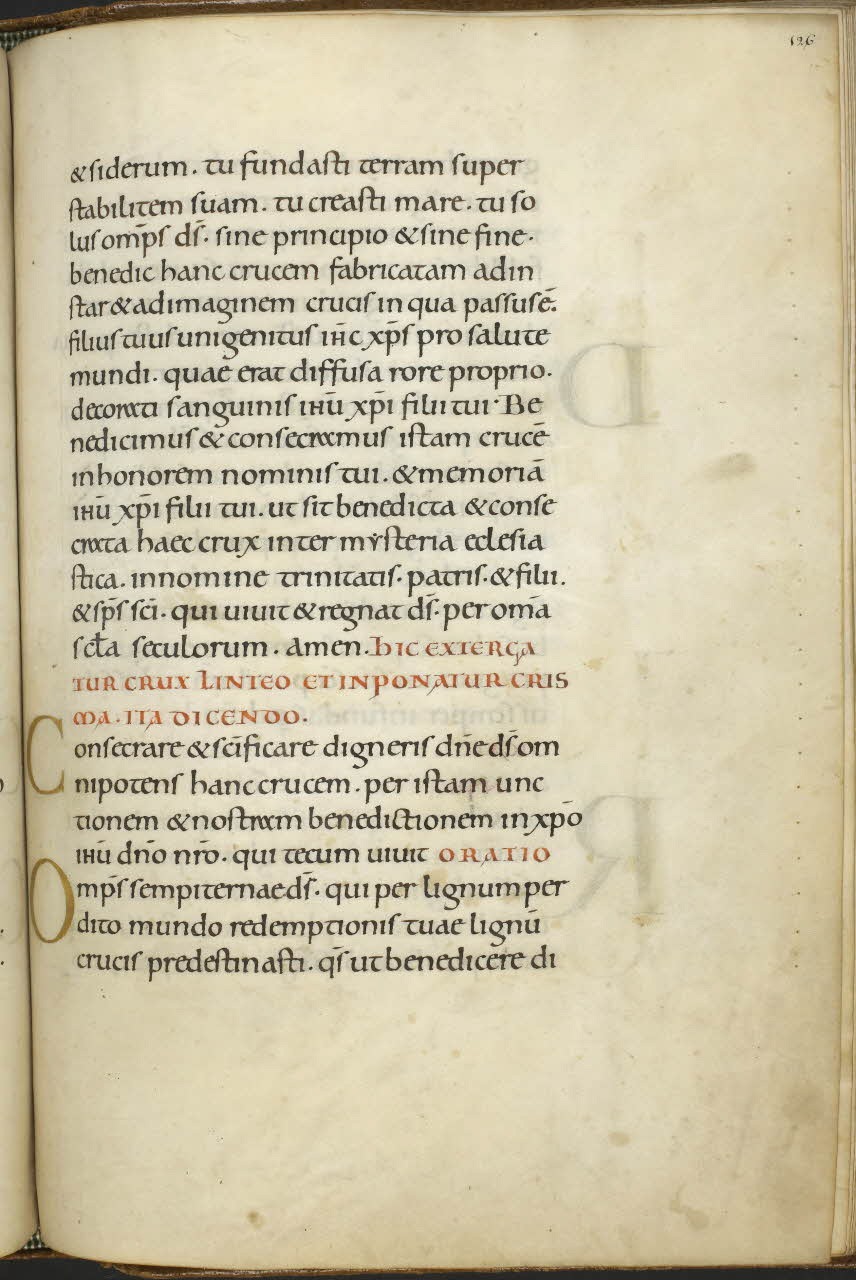 126
& siderum. tu fundasti terram super
stabilitem suam. tu creasti mare. tu so
lus omp̄s ds̄. sine principio & sine fine.
benedic hanc crucem fabricatam ad in
star & ad imaginem crucis in qua passus ē.
filius tuus unigenitus ih̄c xp̄s pro salute
mundi. quae erat diffusa rore proprio.
decorati sanguinis ihū xp̄i filii tui. Be
nedicimus & consecramus istam crucē
in honorem nominis tui. & memoriā
ihū xp̄i filii tui. ut sit benedicta & conse
crata haec crux inter mysteria eclesia
stica. in nomine trinitatis. patris. & filii.
& sp̄s sc̄i. qui uiuit & regnat ds̄. per om̄a
sc̄la seculorum. amen. hIC EXTERGA
TUR CRUX LINTEO ET INPONATUR CRIS
MA. ITA DICENDO.
Consecrare & sc̄ificare digneris dn̄e ds̄ om
nipotens hanc crucem. per istam unc
tionem & nostram benedictionem in xp̄o
ihū dn̄o nr̄o. qui tecum uiuit ORATIO
Omp̄s sempiternae ds̄. qui per lignum per
dito mundo redemptionis tuae lignū
crucis predestinasti. qs̄ ut benedicere di